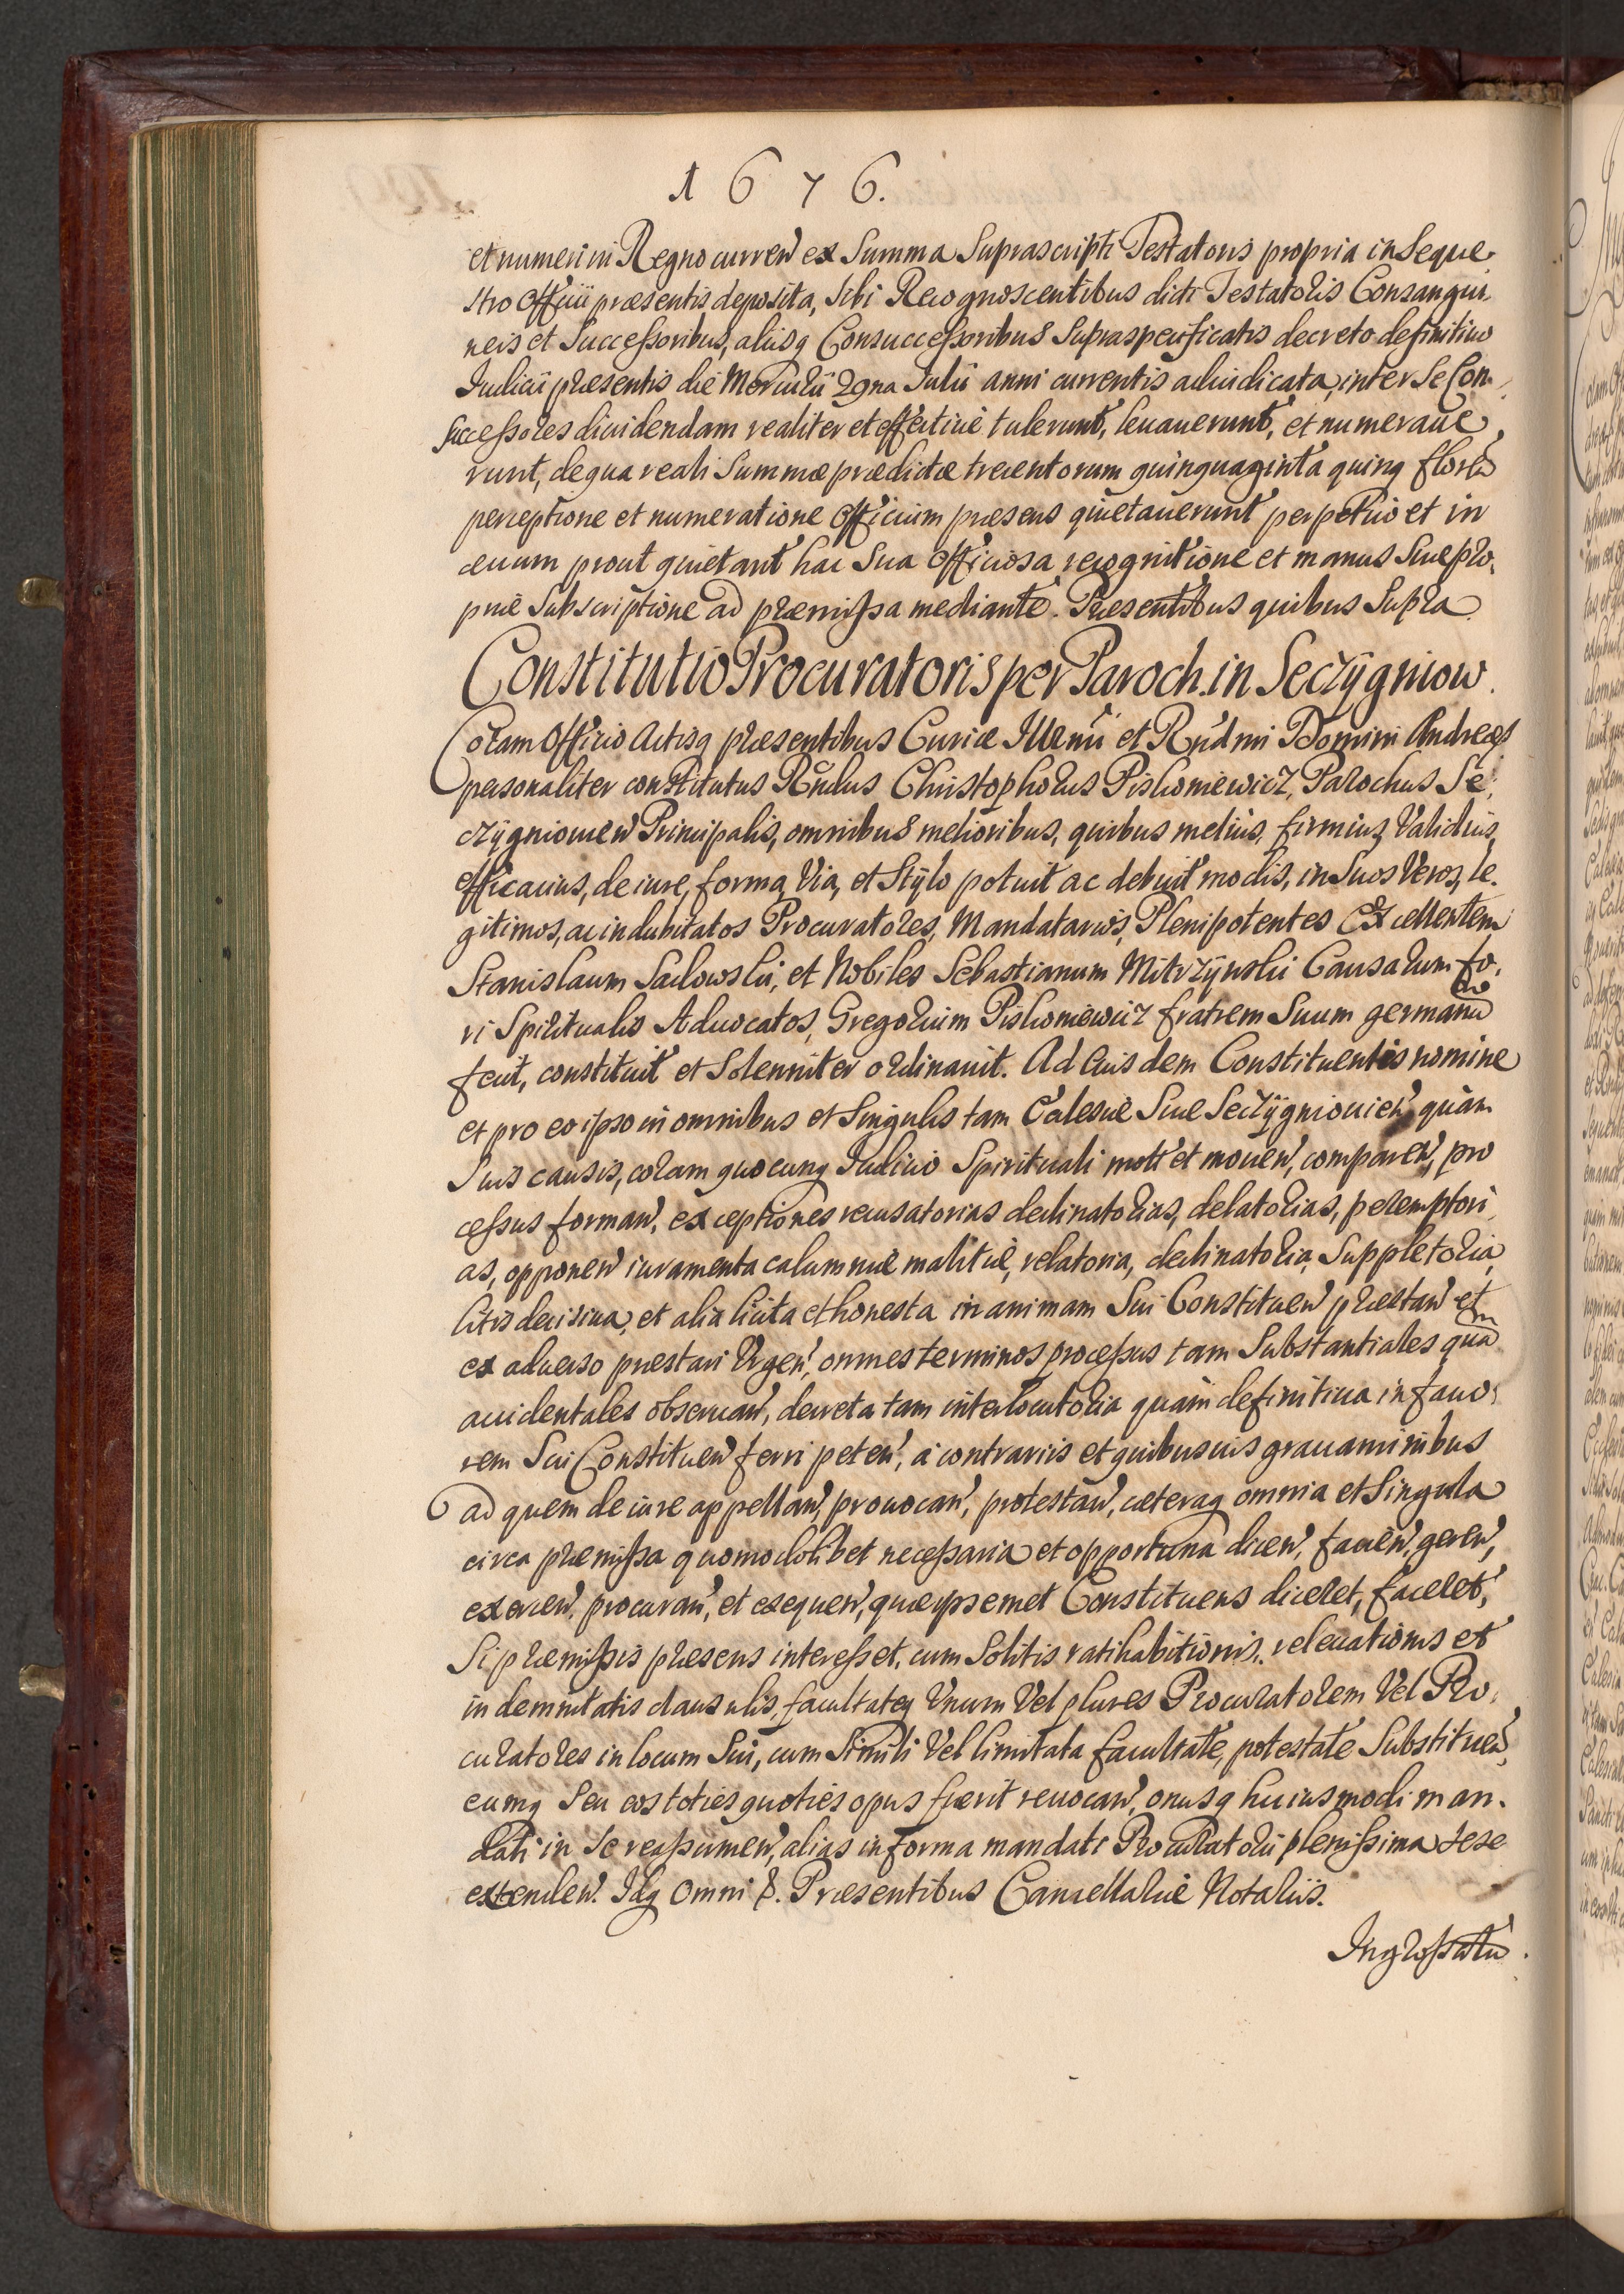 1676.
et numeri in Regno curren̄ ex Summa Suprascripti Testatoris propria in Seque-
stro Officii præsentis deposita, Sibi Recognoscentibus dicti Testatoris Consangui-
neis et Successoribus, aliisq Consuccessoribus Supraspecificatis decreto definitivo
Iudicii præsentis die Mercurii 29na Iulii anni currentis adiudicata, inter Se Con-
Successores dividendam realiter et effectivè tulerunt, levaverunt, et numerave
runt, de qua reali Summæ prædictæ trecentorum quinquaginta quinq floren̄
perceptione et numeratione Officium præsens quietaverunt perpetuò et in
ævum prout quietant hac Sua Officiosa recognitione et manus Suæ pro-
priæ Subscriptione ad præmissa mediante. Præsentibus quibus Supra
Constitutio Procuratoris per Paroch. in Seczÿgniow.
Coram Officio Actisq præsentibus Curiæ Illrmi et Rndmi Domini Andreæ
personaliter constitutus Rndus Christophorus Piskoniewicz, Parochus Se-
czÿgniouien̄ Principalis, omnibus melioribus, quibus meliùs, firmiùs, Validiùs,
efficaciùs, de iure, forma, Via, et Stÿlo potuit ac debuit modis, in Suos Veros, le-
gitimos, ac indubitatos Procuratores, Mandatarios, Plenipotentes Excellentem
Stanislaum Sadowski, et Nobiles Sebastianum Mitrzÿnski Causarum fo-
ri Spiritualis Advocatos, Gregorium Piskoniewicz fratrem Suum germanū
fecit, constituit et Solenniter ordinavit. Ad Eiusdem Constituentis nomine
et pro eo ipso in omnibus et Singulis tam Ecclesiæ Suæ Seczÿgniouien̄ quàm
Suis causis, coram quocunq Iudicio Spirituali mot̄ et mouen̄, comparen̄, pro
cessus forman̄, exceptiones recusatorias declinatorias, delatorias, peremptori-
as, opponen̄ iuramenta calumniæ malitiæ, relatoria, declinatoria, Suppletoria,
litis decisiva, et alia licita et honesta in animam Sui Constituen̄ præstan̄ et
ex adverso præstari Urgen̄, omnes terminos processus tam Substantiales quā
accidentales observan̄, decreta tam interlocutoria quàm definitiva in favo-
rem Sui Constituen̄ ferri peten̄, à contrariis et quibusvis gravaminibus
ad quem de iure appellan̄, provocan̄, protestan̄, cæteraq omnia et Singula
circa præmissa quomodolibet necessaria et opportuna dicen̄, facien̄, geren̄,
exercen̄, procuran̄, et exequen̄, quæ ipsemet Constituens diceret, faceret,
Si præmissis præsens interesset, cum Solitis ratihabitionis, relevationis et
indemnitatis clausulis, facultateq Unum Vel plures Procuratorem Vel Pro-
curatores in locum Sui, cum Simili Vel limitata facultate, potestate Substituen̄,
eumq Seu eos toties quoties opus fuerit revocan̄, onusq huiusmodi man-
dati in Se reassumen̄, alias in forma mandati Procuratorii plenissima Sese
extenden̄. Idq Omni &. Præsentibus Cancellariæ Notariis.
Ingrossatū.